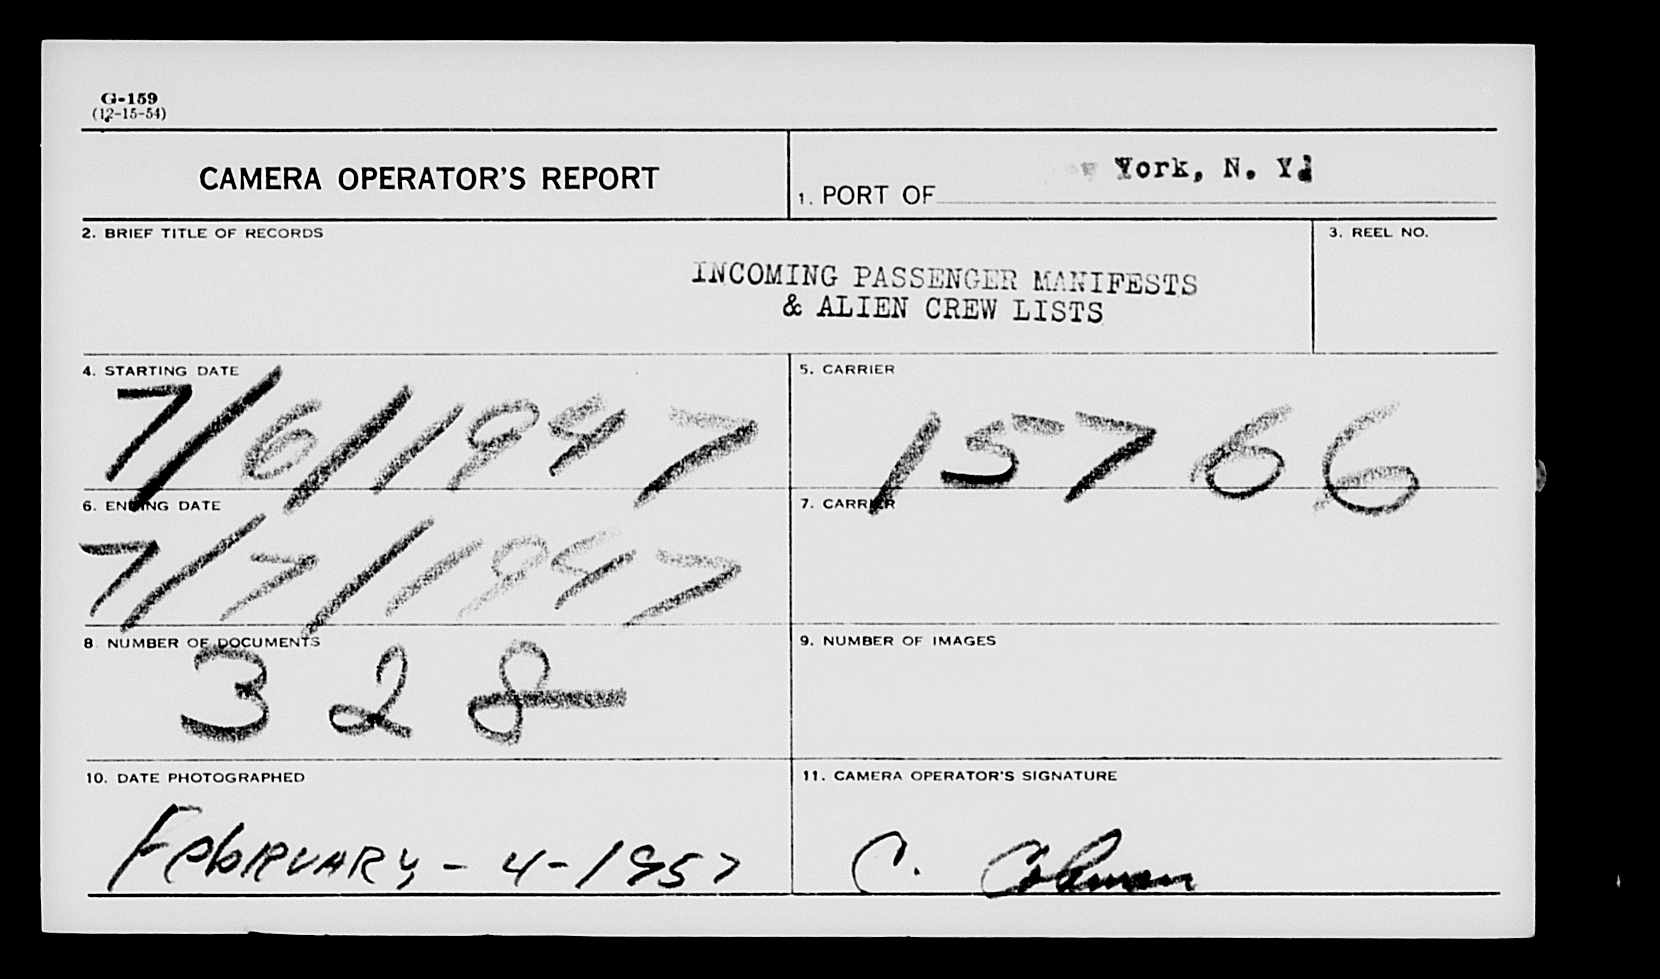 G-159
(12-15-54)
CAMERA OPERATOR'S REPORT
1. PORT OF York, N. Y.
2. BRIEF TITLE OF RECORDS
3. REEL NO.
INCOMING PASSENGER MANIFESTS
& ALIEN CREW LISTS
4. STARTING DATE
7/6/1947
5. CARRIER
15766
6. ENDING DATE
7/7/1947
7. CARRIER
8 NUMBER OF DOCUMENTS
328
9. NUMBER OF IMAGES
10. DATE PHOTOGRAPHED
FebRUARy - 4 - 1957
11. CAMERA OPERATOR'S SIGNATURE
C.